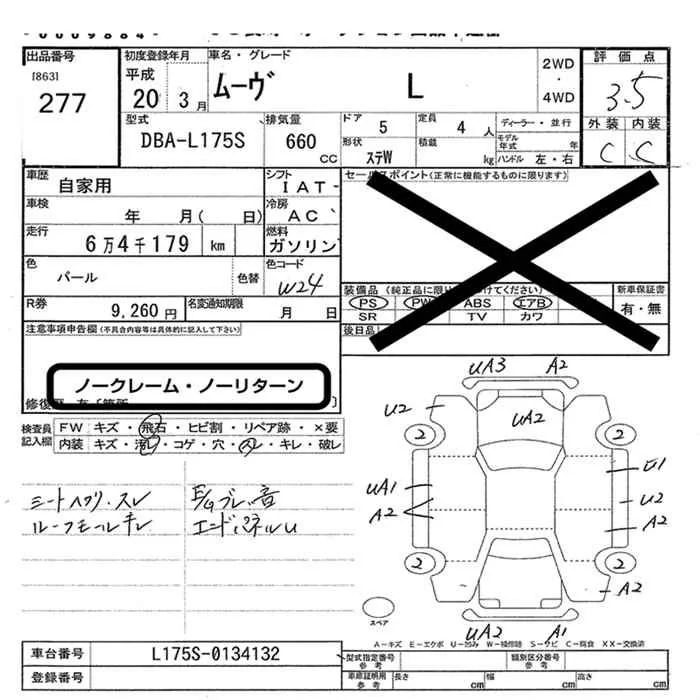 出品番号 初度登録年月 車名・グレード 2WD・4WD 評価点
[863] 277
平成 20 3月 ムーヴ L 3.5
外装 内装
C C
型式 排気量 ドア 5 定員 4人 ディーラー・並行
DBA-L175S 660cc 形状 ステW 積載 kg モデル年式 年
ハンドル 左・右
車歴 自家用 シフト IAT
セールスポイント(正常に機能するものに限ります)
車検 年 月( 日) 冷房 AC
走行 6万4千179 km 燃料 ガソリン
色 パール 色替 色コード W24
装備品 新車保証書
PS PW ABS エアB 有・無
SR TV カワ
後日品
R券 9,260円 名変通知期限 月 日
注意事項申告欄(不具合内容等は具体的に記入して下さい)
ノークレーム・ノーリターン
検査員記入欄 FW キズ・飛石・ヒビ割・リペア跡・×要
内装 キズ・汚レ・コゲ・穴・キレ・破レ
UA3 A2
U2 UA2
2 2
UA1 U1
A2 U2
A2
2 2
A2
UA2 A1
シートヘタリ・スレ
ルーフモールキレ
エンドパネルU
スペア
A-キズ E-エクボ U-凹み W-補修跡 S-サビ C-腐食 XX-交換済
車台番号 L175S-0134132 型式指定番号 参考 類別区分番号 参考
登録番号 車庫証明用 参考 長さ cm 幅 cm 高さ cm